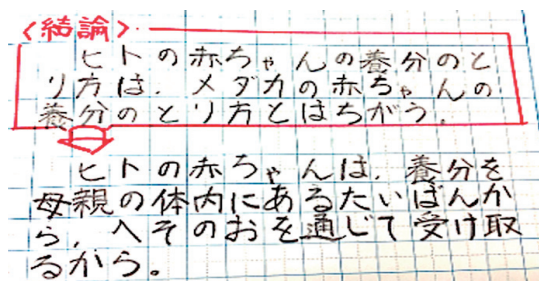 〈結論〉
ヒトの赤ちゃんの養分のと
り方は，メダカの赤ちゃんの
養分のとり方とはちがう。
ヒトの赤ちゃんは，養分を
母親の体内にあるたいばんか
ら，へそのおを通じて受け取
るから。